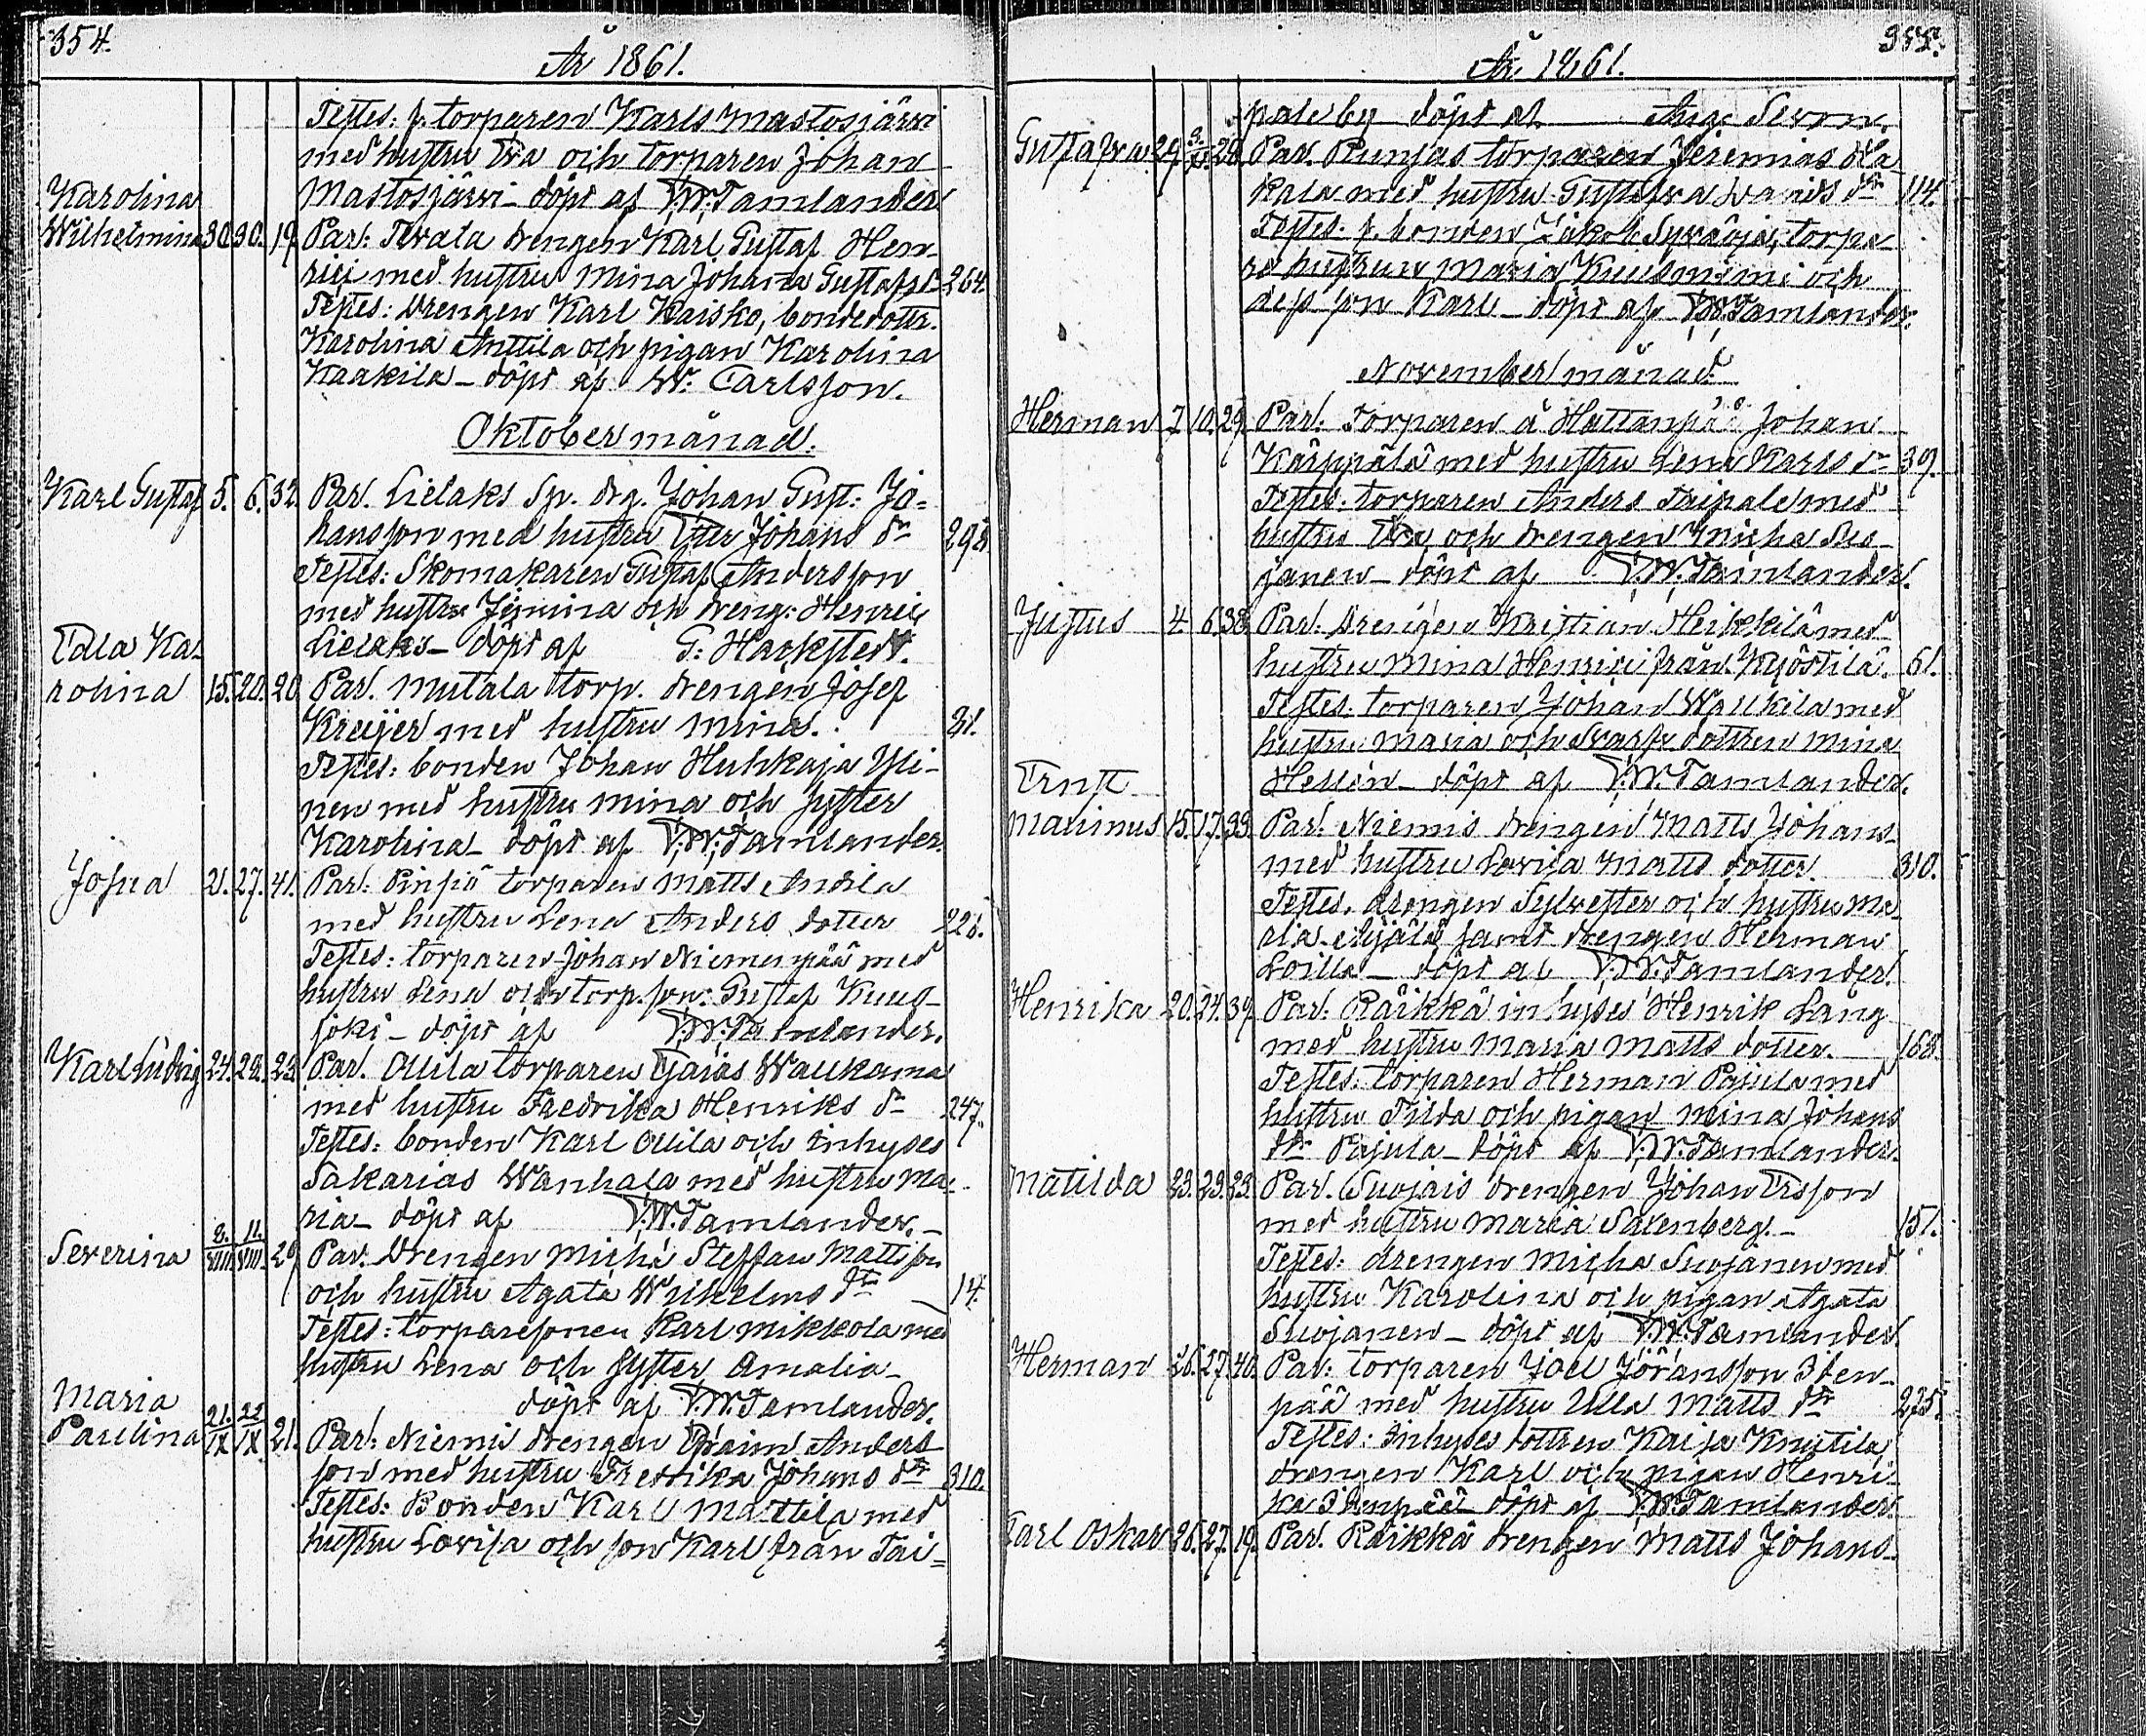 354.
År 1861.
Testes: f. torparen Karls Mastosjärvi
med hustru Eva och torparen Johan
Mastosjärvi - döpt af V.W. Tamlander
Karolina
Wilhelmina 30. 30. 19. Par: Tevala drengen Karl Gustaf Hen-
rici med hustru Mina Johana Gustafsd. 264.
Testes: Drengen Karl Kaisko, bondedottr.
Karolina Anttila och pigan Karolina
Kaakila - döpt af W. Carlsson.
Oktober månad.
Karl Gustaf 5. 6. 32. Par. Lielaks Sp. drg. Johan Gust: Jo-
hansson med hustru Johans dr 298
Testes: Skomakaren Gustaf Andersson
med hustru och dreng: Henric
Lielaks - döpt af G:
Edla Ka-
rolina 15. 20. 20 Par. Mutala torp. drengen Josef
Kreijer med hustru Mina. 21.
Testes: bonden Johan Huhkaja Yli-
nen med hustru Mina och syster
Karolina - döpt af V.W. Tamlander.
Josua 21. 27. 41. Par: Pinsiö torparen Matts Andila
med hustru Lena Anders dotter 228.
Testes: torparen Johan Niemenpää med
hustru Lena och torp. son: Gustaf Kuus-
joki - döpt af V.W. Tamlander.
Karl Ludvig 24. 29. 23. Par. Ollila torparen Esaias Waukama
med hustru Fredrika Henriks dr 247.
Testes: bonden Karl Ollila och inhyses
Sakarias Wanhala med hustru Ma-
ria - döpt af V.W. Tamlander. -
Severina 8./VIII. 11./VIII. 29 Par. Drengen Micha Steffan Mattsson
och hustru Agata Wilhelms dtr 14.
Testes: torparesonen Karl Mikkola med
hustru Lena och syster Amalia -
döpt af V.W. Tamlander.
Maria
Paulina 21./IX 22/IX 21. Par: Niemis drengen Efraim Anders-
son med hustru Fredrika Johans dtr 310.
Testes: Bonden Karl Mattila med
hustru Lovisa och son Karl från Tai-
355.
År 1861.
pale by döpt af Aug.
Gustafva 29 29 Par. Punjas torparen Jeremias Ha
kala med hustru Gustafva dr 114.
Testes: f. bonden Jakob Syväoja, torpa-
re hustrun Maria Kuusniemi och
dess son Karl - döpt af V.W. Tamlander.
November månad.
Herman 7. 10. 29. Par: Torparen å Hattanpää Johan
Kärppälä med hustru Lena Karls dr 39.
Testes: torparen Anders Taipale med
hustru Eva och drengen Micha Suo-
janen - döpt af V.W. Tamlander.
Justus 4. 6. 38. Par. Drengen Kristian Heikkilä med
hustru Mina Henrici från Kyöstilä. 61.
Testes: torparen Johan Waukila med
hustru Maria och dottren Mina
Hellén - döpt af V.W. Tamlander.
Ernst
Maximus 15. 17. 33. Par: Niemis drengen Matts Johans-
med hustru Lovisa Matts dotter. 310.
Testes. drengen Sylvester och hustru Ma-
ria samt drengen Herman
Loilla - döpt af V.W. Tamlander.
Henrika 20. 24. 39. Par: Räikkä inhyses Henrik Lång
med hustru Maria Matts dotter. 168.
Testes: torparen Herman Pajula med
hustru Tilda och pigan Mina Johans
dtr Pajula - döpt af V.W. Tamlander.
Matilda 23. 23. 23. Par. Suojais drengen Johan Ersson
med hustru Maria Saxenberg. - 151.
Testes: drengen Micha Suojanen med
hustru Karolina och pigan Agata
Suojanen - döpt af V.W. Tamlander.
Herman 26. 27. 40. Par: torparen Joel Göransson Iden-
pää med hustru Ulla Matts dtr 275.
Testes: Inhyses dottren Kaisa Knutila,
drengen Karl och pigan Henri-
ka Idenpää - döpt af V.W. Tamlander.
Karl Oskar 26. 27. 19. Par. Räikkä drengen Matts Johans-